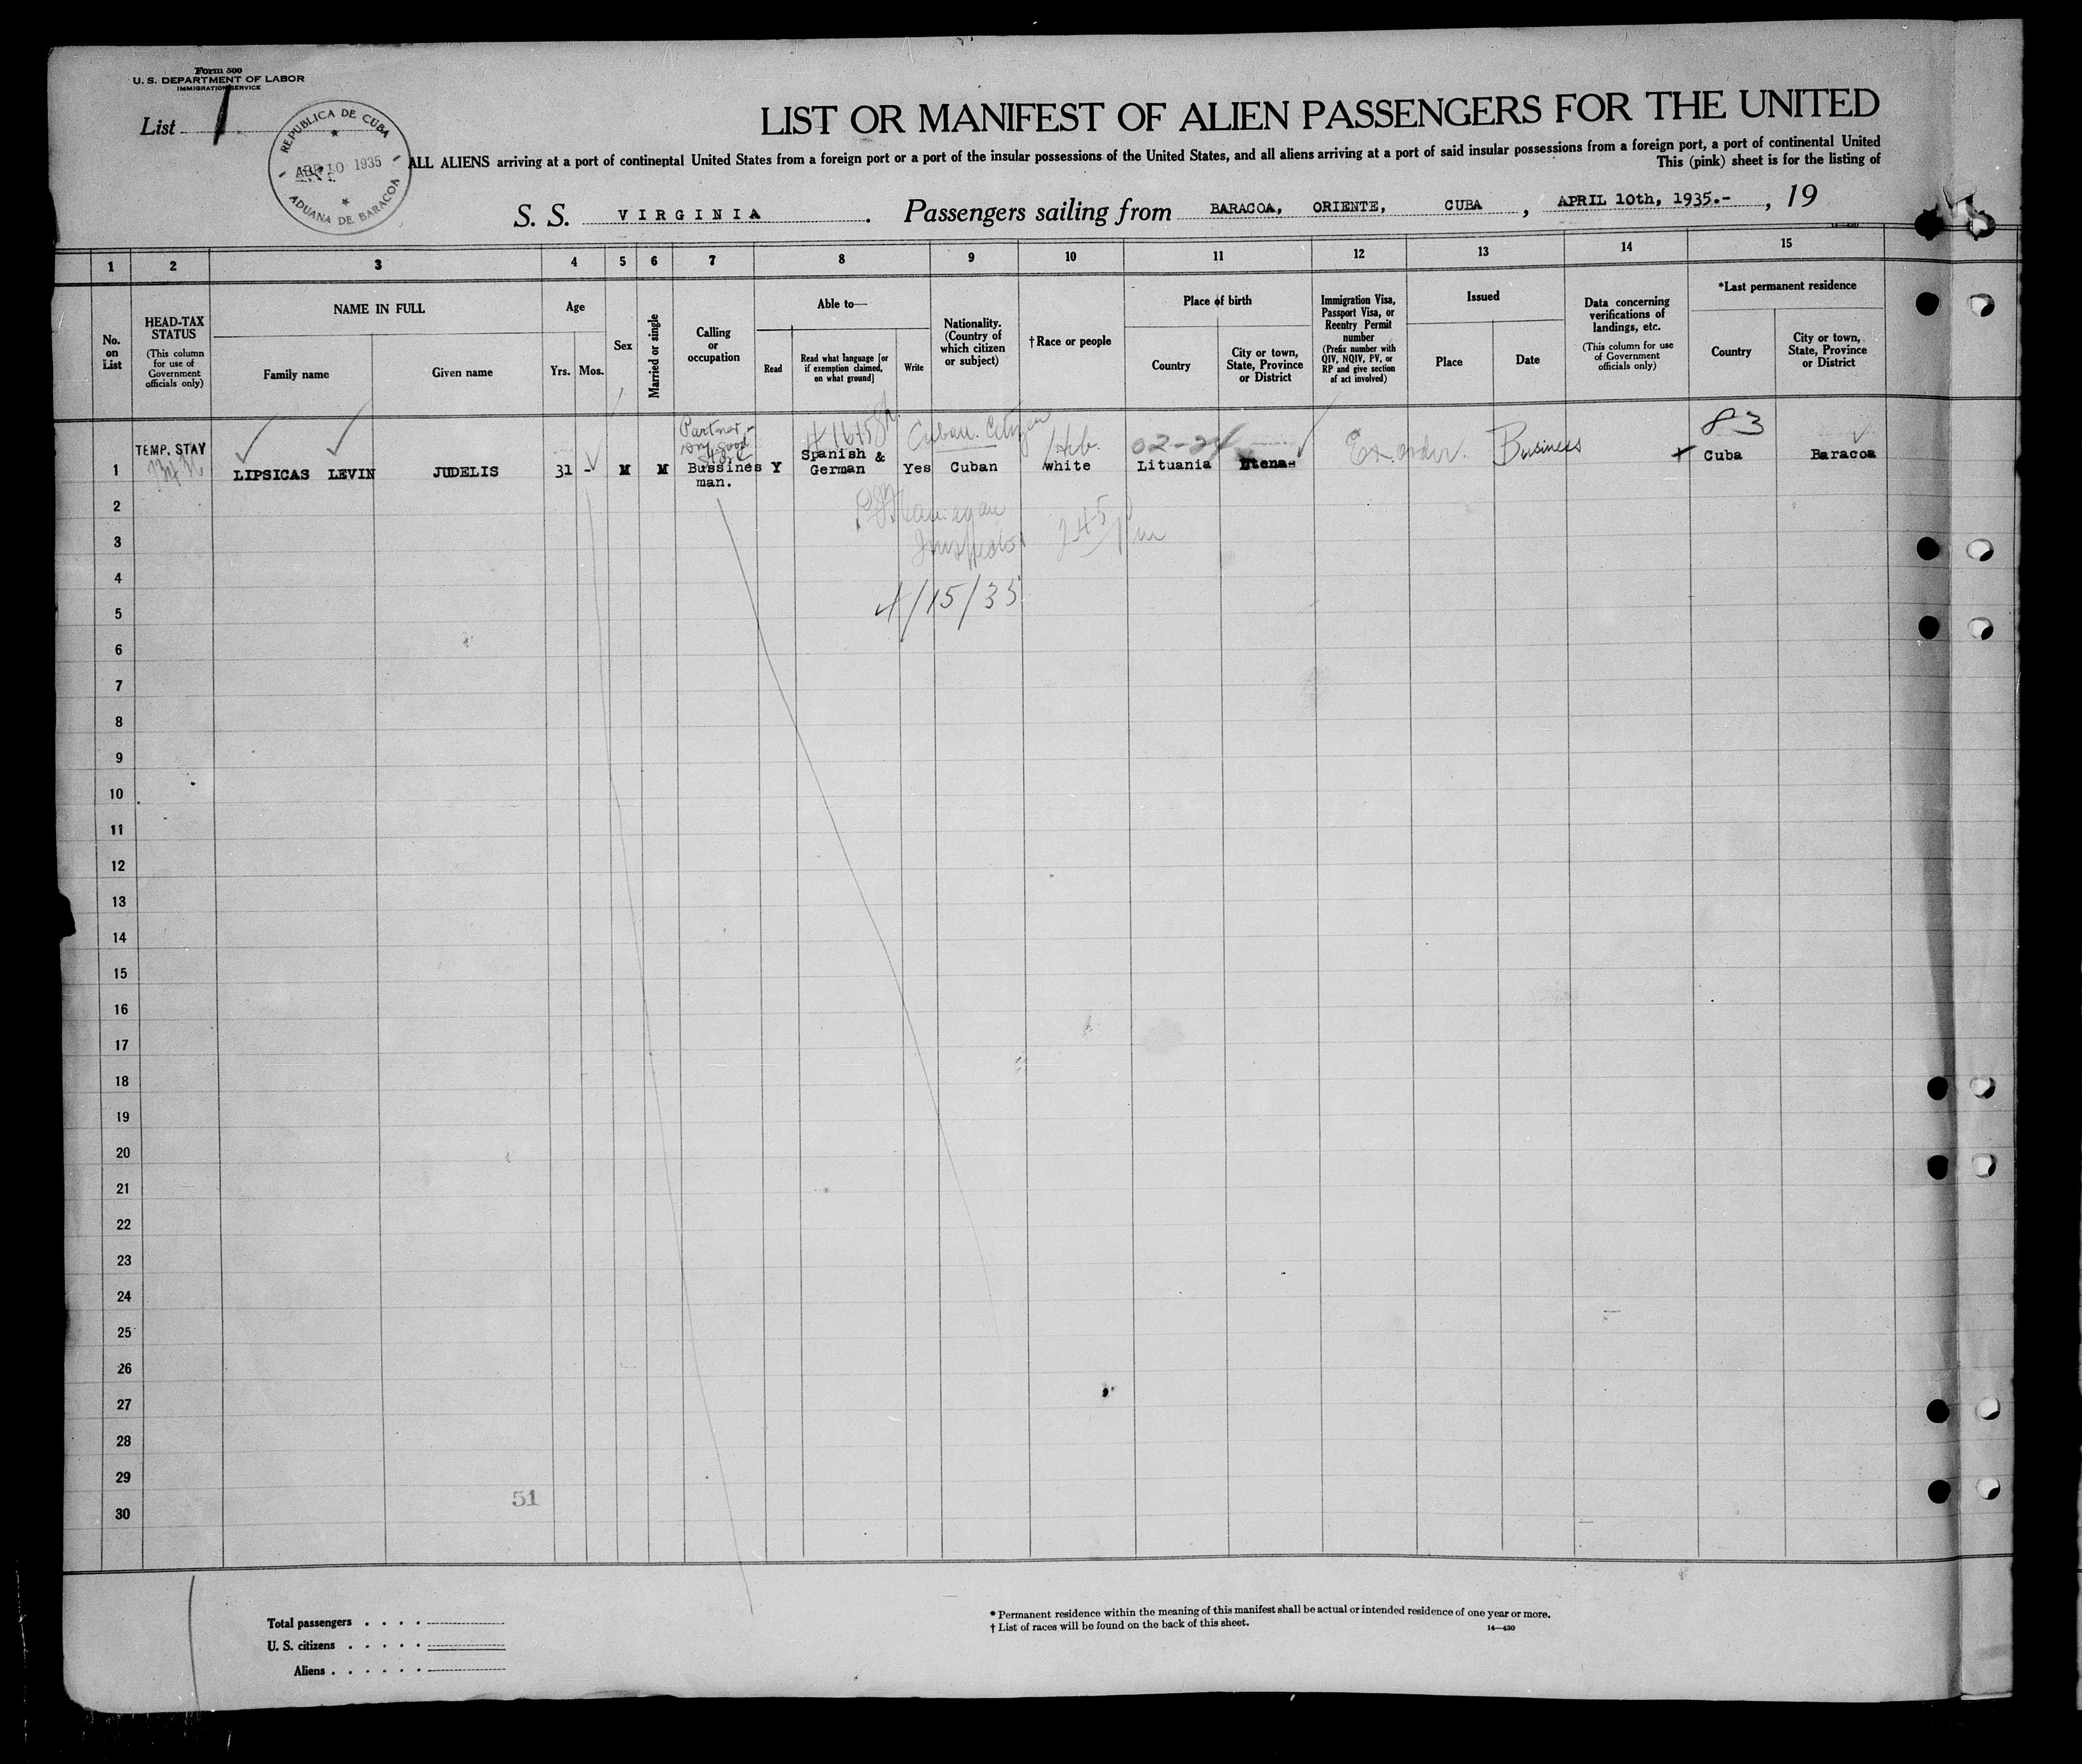 Form 500
U. S. DEPARTMENT OF LABOR
IMMIGRATION SERVICE
List 1
REPUBLICA DE CUBA
ABR 10 1935
ADUANA DE BARACOA
LIST OR MANIFEST OF ALIEN PASSENGERS FOR THE UNITED
ALL ALIENS arriving at a port of continental United States from a foreign port or a port of the insular possessions of the United States, and all aliens arriving at a port of said insular possessions from a foreign port, a port of continental United
This (pink) sheet is for the listing of
S. S. VIRGINIA. Passengers sailing from BARACOA, ORIENTE, CUBA, APRIL 10th, 1935.-, 19
1 2 3 4 5 6 7 8 9 10 11 12 13 14 15
No. on List
HEAD-TAX STATUS
(This column for use of Government officials only)
NAME IN FULL
Family name
Given name
Age
Yrs. Mos.
Sex
Married or single
Calling or occupation
Able to—
Read
Read what language [or if exemption claimed, on what ground]
Write
Nationality. (Country of which citizen or subject)
†Race or people
Place of birth
Country
City or town, State, Province or District
Immigration Visa, Passport Visa, or Reentry Permit number
(Prefix number with QIV, NQIV, PV, or RP and give section of act involved)
Issued
Place
Date
Data concerning verifications of landings, etc.
(This column for use of Government officials only)
*Last permanent residence
Country
City or town, State, Province or District
Partner
dry good
Store
Cuban Citizen
Heb.
02-24
Ex. order. Business
83
1 TEMP. STAY LIPSICAS LEVIN JUDELIS 31 - M M Bussines man. Y Spanish & German Yes Cuban white Lituania Cuba Baracoa
2
Inspector
245 Pm
3
4
4/15/35
5
6
7
8
9
10
11
12
13
14
15
16
17
18
19
20
21
22
23
24
25
26
27
28
29
51
30
Total passengers
U. S. citizens
Aliens
* Permanent residence within the meaning of this manifest shall be actual or intended residence of one year or more.
† List of races will be found on the back of this sheet.
14—430